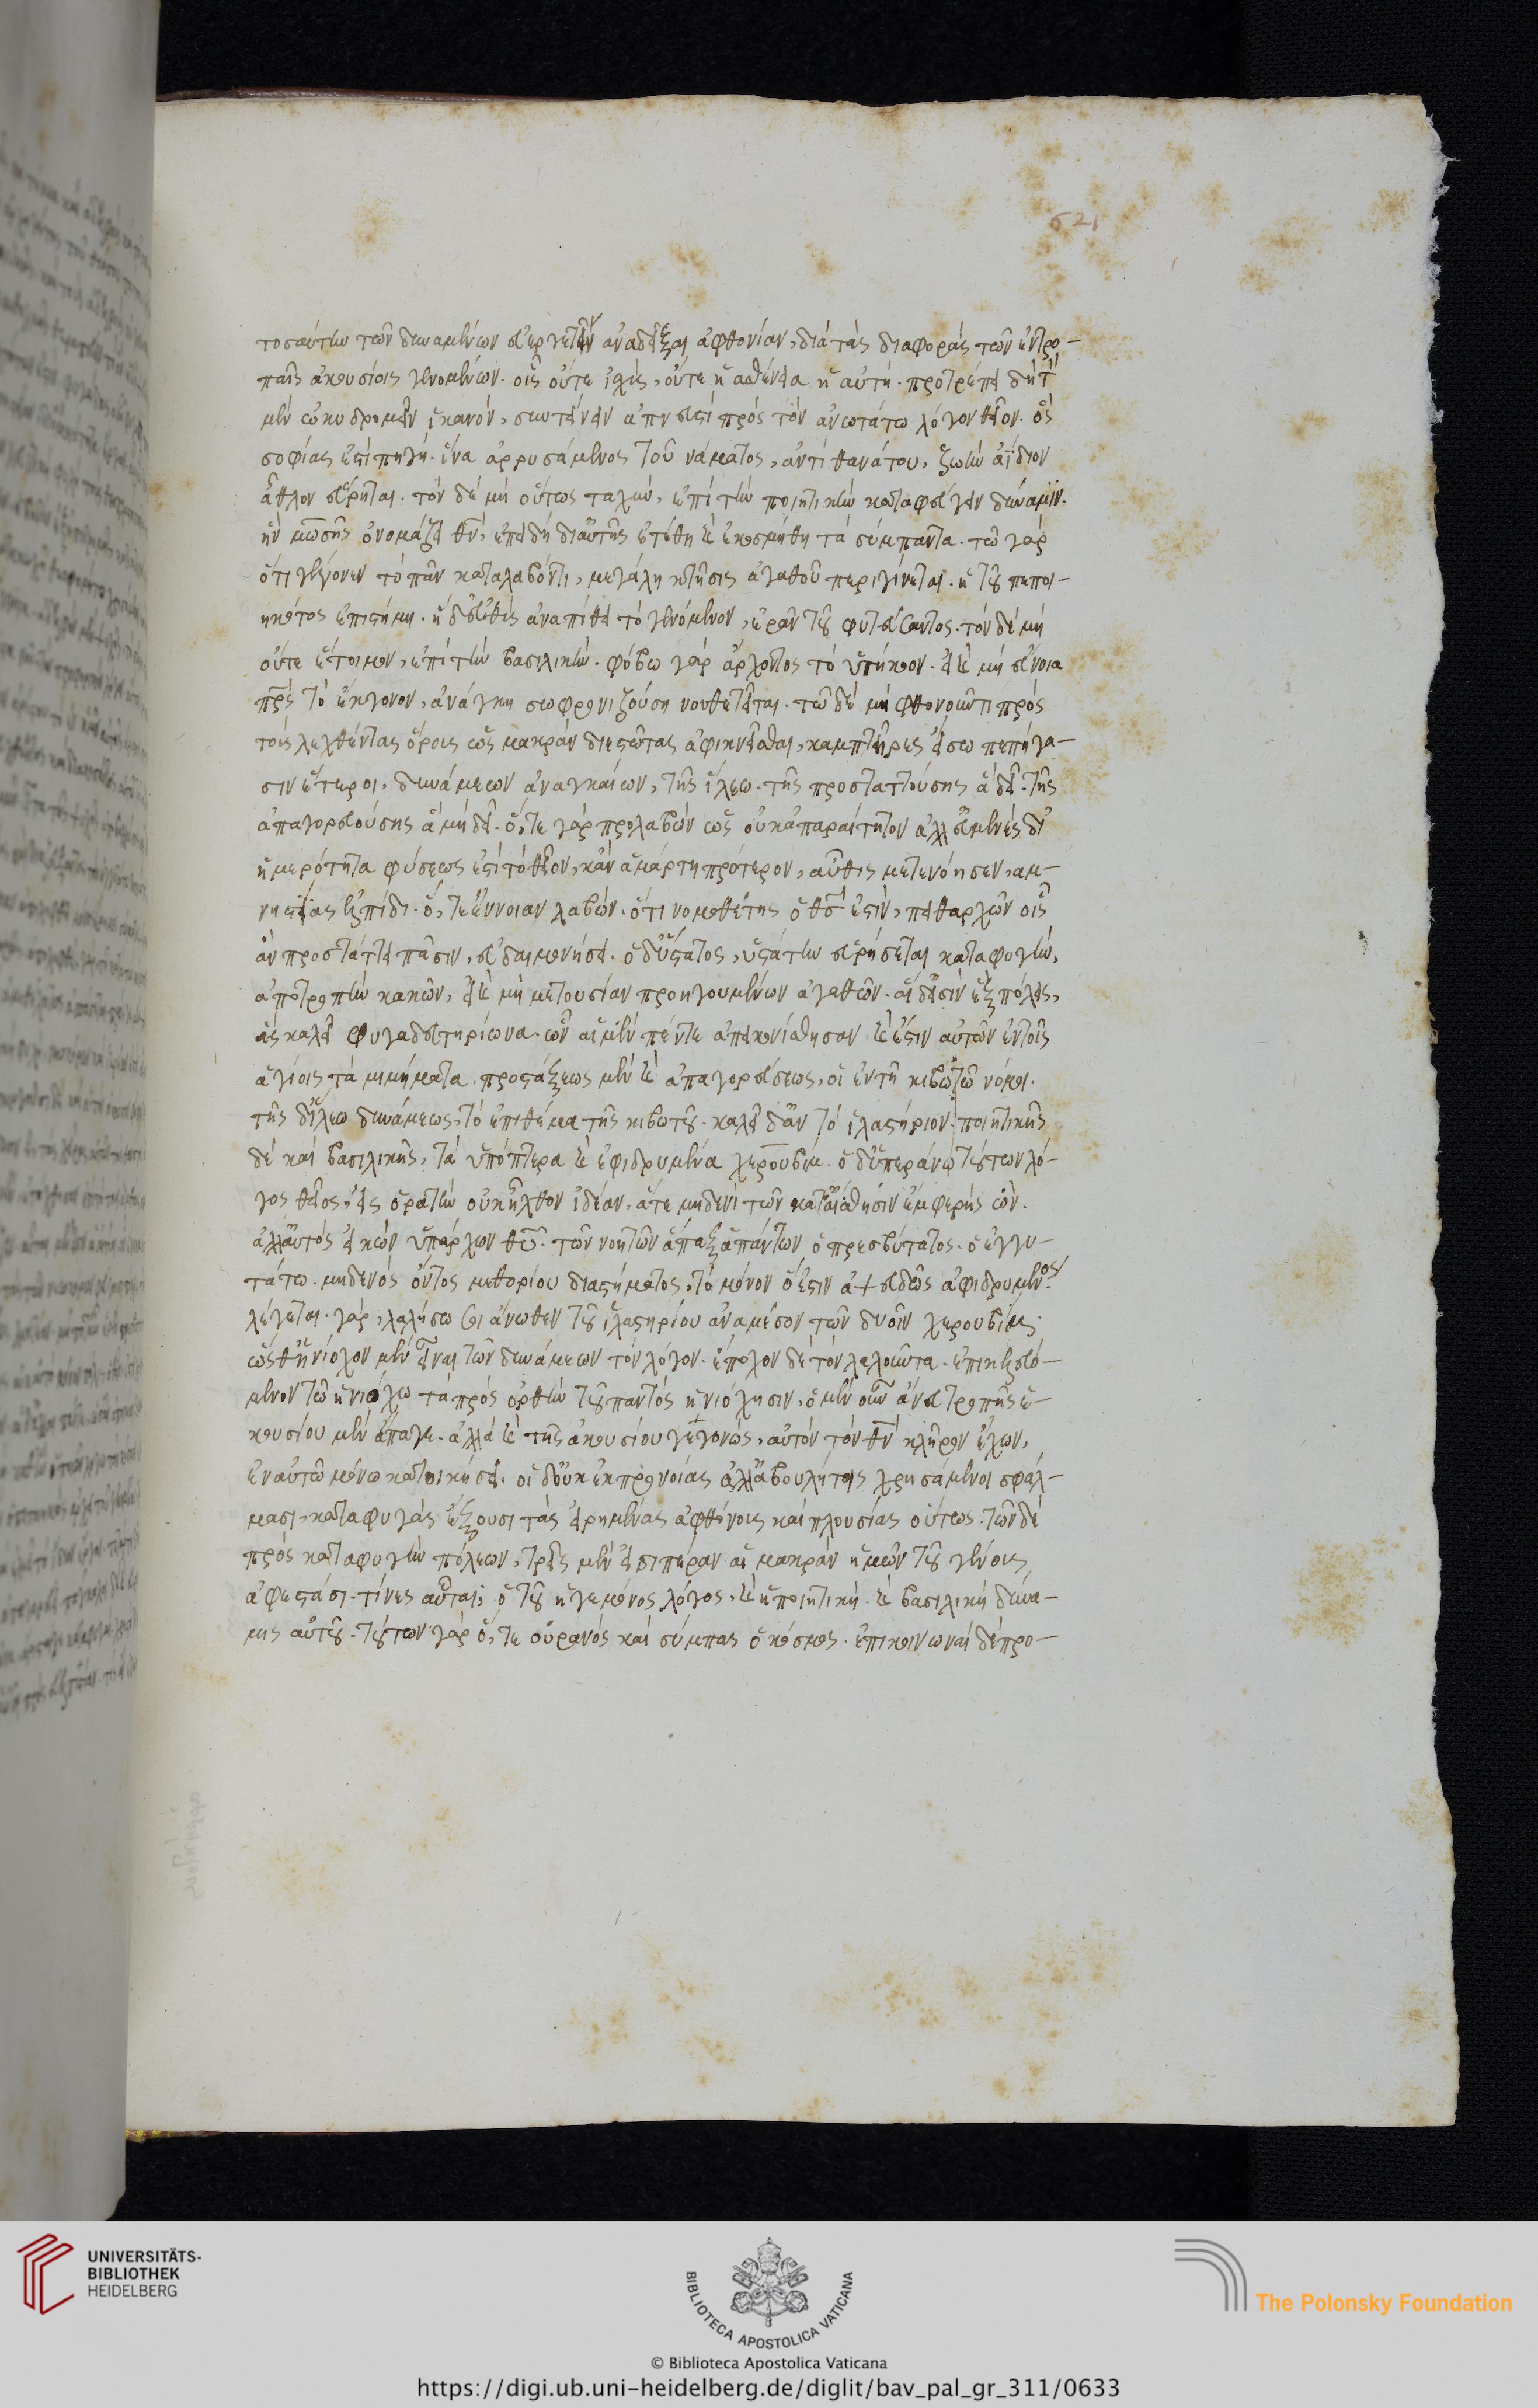 621
τοσαύτην τῶν δυναμένων εὐεργετεῖν ἀναδεῖξαι ἀφθονίαν, διὰ τὰς διαφορὰς τῶν ἐν τρο-
παῖς ἀκουσίοις γενομένων. οἷς οὔτε ἰσχὺς, οὔτε ἡ ἀσθένεια ἡ αὐτή. προτρέπει δὴ τὸν
μὲν ὠκυδρομεῖν ἱκανὸν, συντείνειν ἀπνευστὶ πρὸς τὸν ἀνωτάτω λόγον θεῖον. ὃς
σοφίας ἐστὶ πηγή. ἵνα ἀρρυσάμενος τοῦ νάματος, ἀντὶ θανάτου, ζωὴν ἀΐδιον
ἆθλον εὕρηται. τὸν δὲ μὴ οὕτως ταχὺν, ἐπὶ τὴν ποιητικὴν καταφεύγειν δύναμιν.
ἣν μωσῆς ὀνομάζει θν, ἐπειδὴ δι' αὐτῆς ἐτέθη καὶ ἐκοσμήθη τὰ σύμπαντα. τῷ γὰρ
ὅτι γέγονεν τὸ πᾶν καταλαβόντι, μεγάλη κτῆσις ἀγαθοῦ περιγίνεται. ἡ τοῦ πεποι-
ηκότος ἐπιστήμη. ἡ δ' εὐθὺς ἀναπείθει τὸ γενόμενον, ἐρᾶν τοῦ φυτεύσαντος. τὸν δὲ μὴ
οὔτε ἕτοιμον, ἐπὶ τὴν βασιλικήν. φόβῳ γὰρ ἄρχοντος τὸ ὑπήκοον. εἰ καὶ μὴ εὔνοια
πρὸς τὸ ἔκγονον, ἀνάγκη σωφρονιζούση νουθετεῖται. τῷ δὲ μὴ φθονοῦντι πρὸς
τοὺς λεχθέντας ὅρους ὡς μακρὰν διεστῶτας ἀφικνεῖσθαι, καμπτῆρες εἴσω πεπήγα-
σιν ἕτεροι, δυνάμεων ἀναγκαίων, τῆς ἵλεω. τῆς προσταττούσης ἃ δεῖ. τῆς
ἀπαγορευούσης ἃ μὴ δεῖ. ὅ, τε γὰρ προλαβὼν ὡς οὐκ ἀπαραίτητον ἀλλ' εὐμενὲς δι'
ἡμερότητα φύσεως ἐστὶ τὸ θεῖον, κἂν ἁμάρτη πρότερον, αὖθις μετενόησεν, ἀμ-
νηστείας ἐλπίδι. ὅ, τε ἔννοιαν λαβὼν. ὅτι νομοθέτης ὁ θς ἐστὶν, πειθαρχῶν οἷς
ἂν προστάττει πᾶσιν, εὐδαιμονήσει. ὁ δ' ὕστατος, ὑστάτην εὑρήσεται καταφυγὴν,
ἀποτροπὴν κακῶν, εἰ καὶ μὴ μετουσίαν προηγουμένων ἀγαθῶν. αἵδ' εἰσὶν ἓξ πόλεις,
ἃς καλεῖ φυγαδευτηρίωνα. ὧν αἱ μὲν πέντε ἀπεικονίσθησαν. καὶ ἔστιν αὐτῶν ἐν τοῖς
ἁγίοις τὰ μιμήματα. προστάξεως μὲν καὶ ἀπαγορεύσεως, οἱ ἐν τῇ κιβωτῷ νόμοι.
τῆς δ' ἵλεω δυνάμεως, τὸ ἐπίθεμα τῆς κιβωτοῦ. καλεῖ δ' ἂν τὸ ἱλαστήριον. ποιητικῆς
δὲ καὶ βασιλικῆς, τὰ ὑπόπτερα καὶ ἐφιδρυμένα χερουβιμ. ὁ δ' ὑπεράνω τούτων λό-
γος θεῖος, εἰς ὁρατὴν οὐκ ἦλθον ἰδέαν, ἅτε μηδενὶ τῶν κατ' αἴσθησιν ἐμφερὴς ὤν.
ἀλλ' αὐτὸς εἰκὼν ὑπάρχων θυ. τῶν νοητῶν ἅπαξ ἁπάντων ὁ πρεσβύτατος. ὁ ἐγγυ-
τάτω. μηδενὸς ὄντος μεθορίου διαστήματος, τὸ μόνον ὅ ἐστιν ἀψευδῶς ἀφιδρυμένος.
λέγεται. γὰρ, λαλήσω σοι ἄνωθεν τοῦ ἱλαστηρίου ἀναμέσον τῶν δυοῖν χερουβίμ.
ὡς θ' ἡνίοχον μὲν εἶναι τῶν δυνάμεων τὸν λόγον. ἔποχον δὲ τὸν λαλοῦντα. ἐπικελευό-
μενον τῷ ἡνιόχῳ τὰ πρὸς ὀρθὴν τοῦ παντὸς ἡνιόχησιν. ὁ μὲν οὖν ἄνευ τροπῆς ἑ-
κουσίου μὲν ἄπαγε. ἀλλὰ καὶ τῆς ἀκουσίου γεγονὼς, αὐτὸν τὸν θν κλῆρον ἔχων,
ἐν αὐτῷ μόνῳ κατοικήσει. οἱ δ' οὐκ ἐκ προνοίας ἀλλ' ἀβουλήτοις χρησάμενοι σφάλ-
μασι, καταφυγὰς ἕξουσι τὰς εἰρημένας ἀφθόνοις καὶ πλουσίας οὕτως. τῶν δὲ
πρὸς καταφυγὴν πόλεων, τρεῖς μὲν εἰσι πέραν αἳ μακρὰν ἡμῶν τοῦ γένους
ἀφεστᾶσι. τίνες αὗται; ὁ τοῦ ἡγεμόνος λόγος. καὶ ἡ ποιητικὴ. καὶ βασιλικὴ δύνα-
μις αὐτοῦ. τούτων γὰρ ὅ, τε οὐρανὸς καὶ σύμπας ὁ κόσμος. ἐπικοινωναὶ δὲ προ-
UNIVERSITÄTS-
BIBLIOTHEK
HEIDELBERG
BIBLIOTECA APOSTOLICA VATICANA
The Polonsky Foundation
© Biblioteca Apostolica Vaticana
https://digi.ub.uni-heidelberg.de/diglit/bav_pal_gr_311/0633